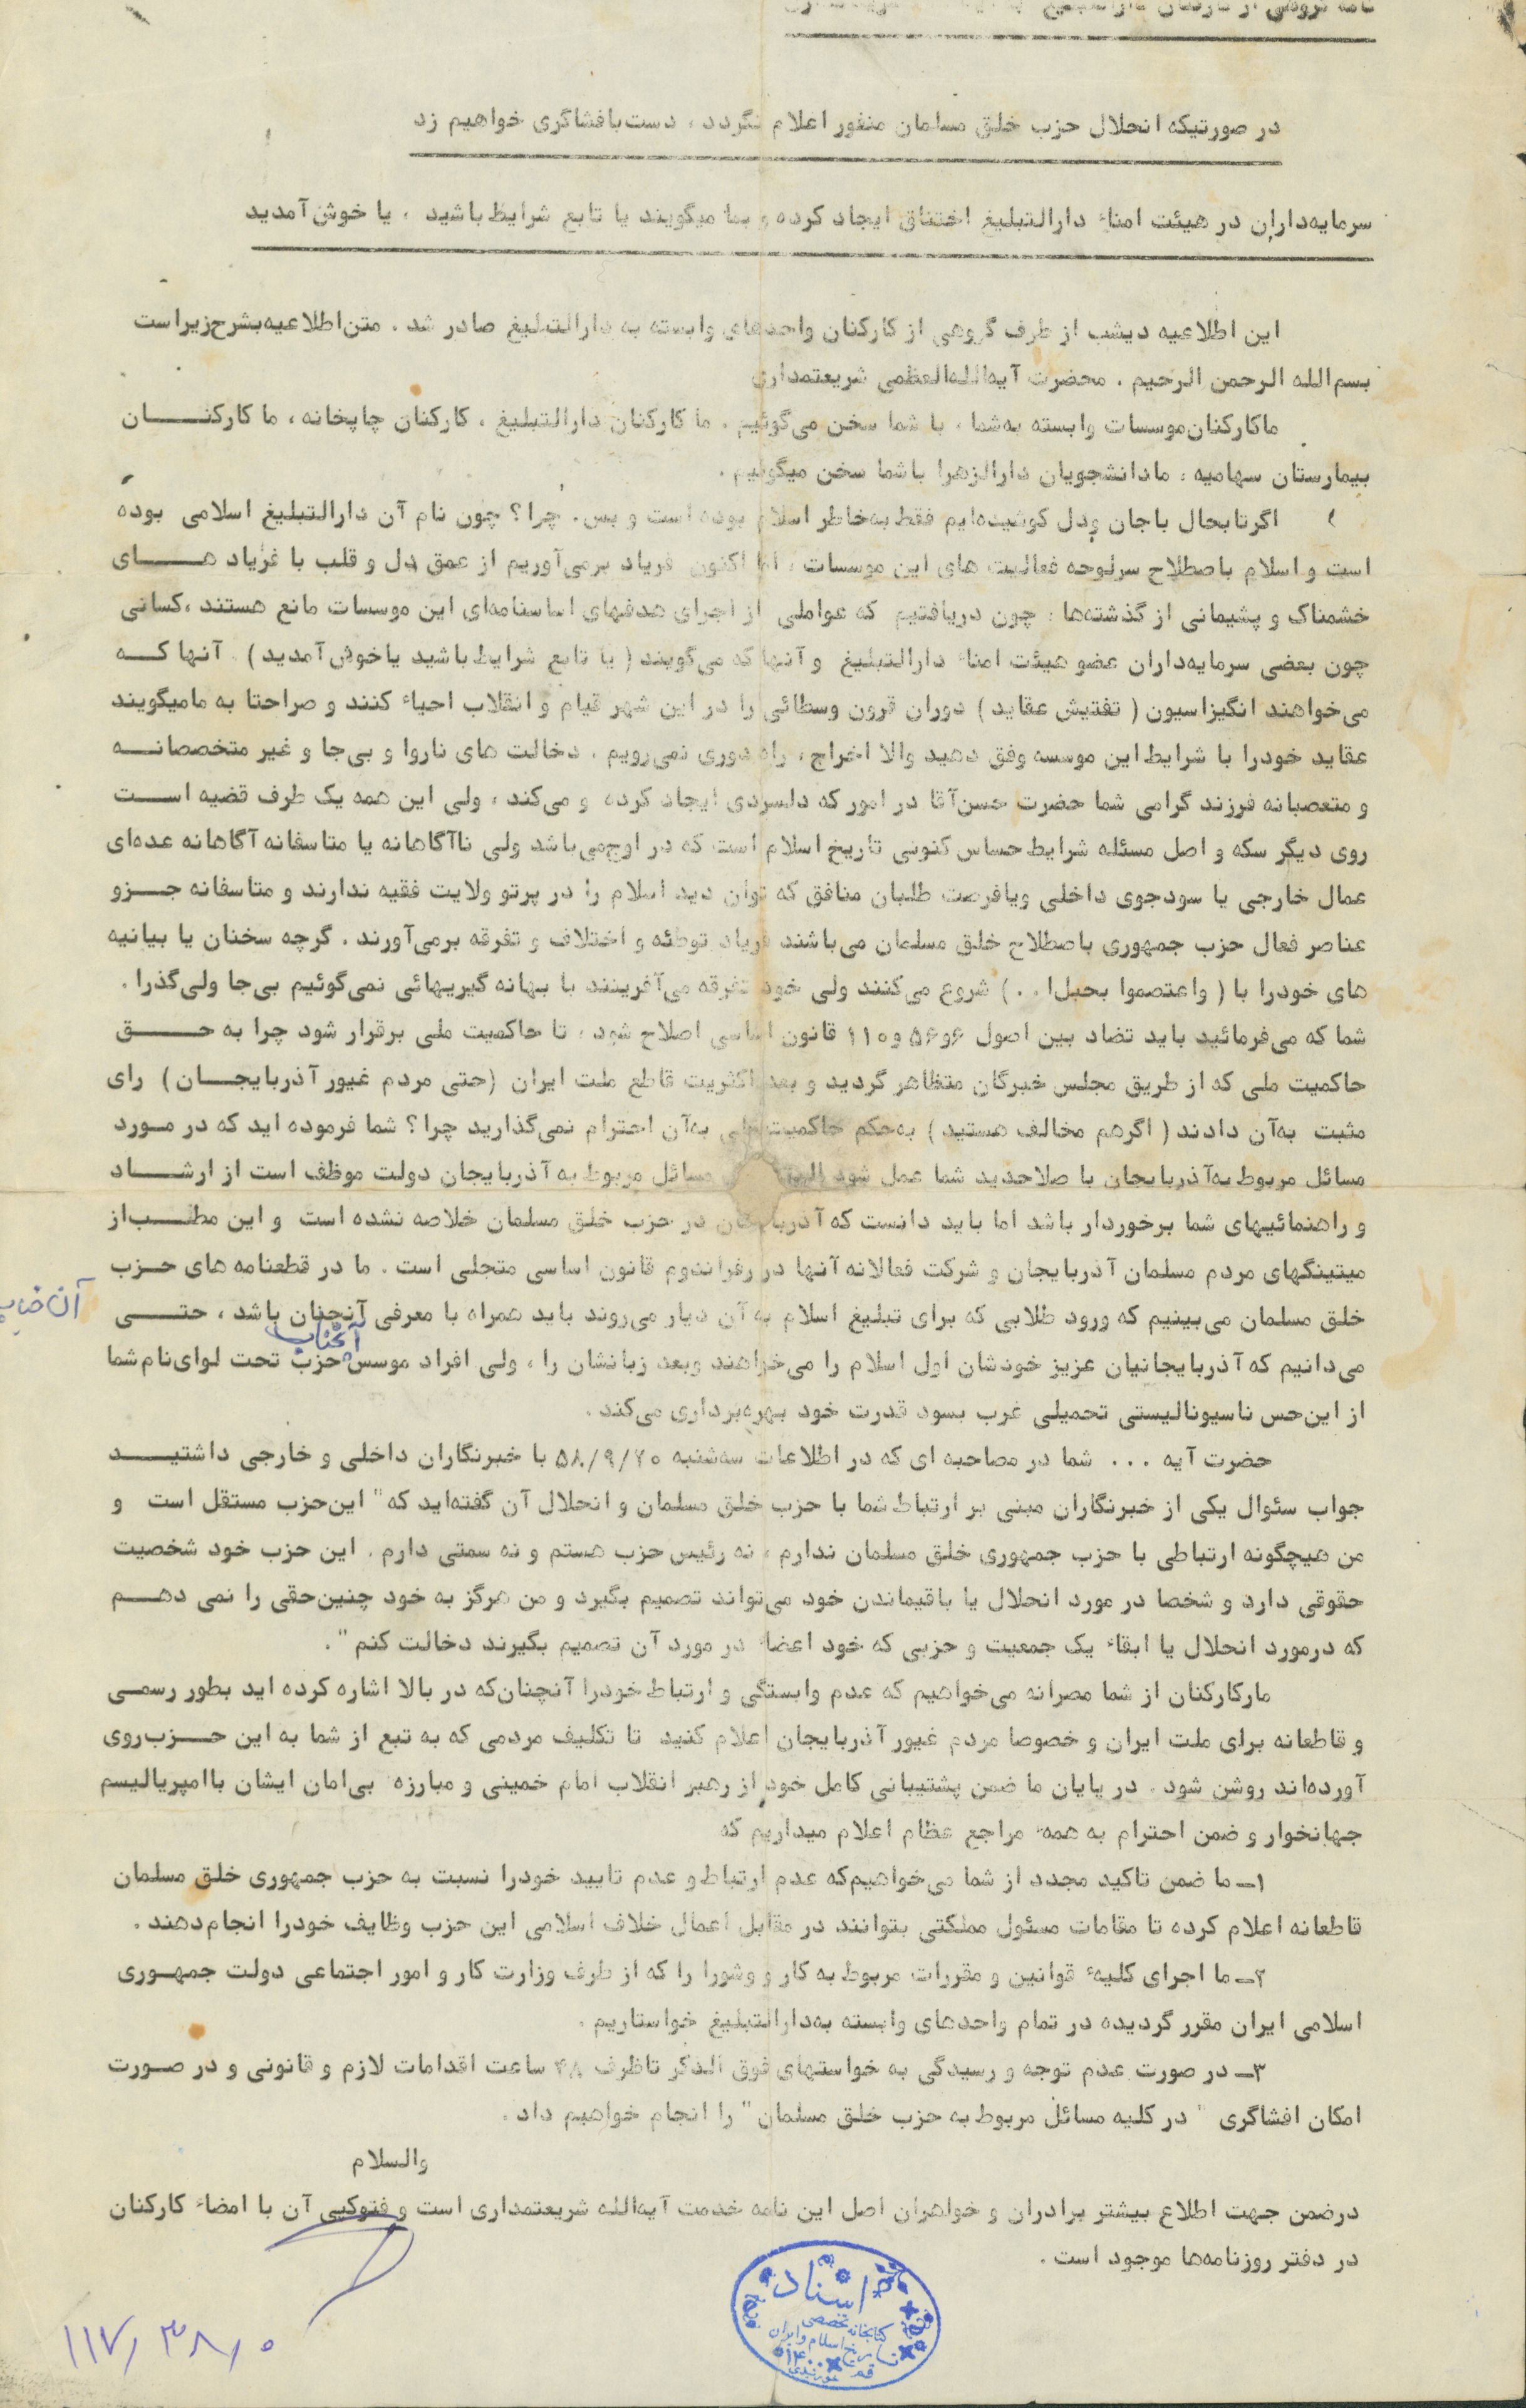 نامه گروهی از کارکنان دارالتبلیغ
در صورتیکه انحلال حزب خلق مسلمان منفور اعلام نگردد ، دست‌بافشاگری خواهیم زد
سرمایه‌داران در هیئت امناء دارالتبلیغ اختناق ایجاد کرده و بما میگویند یا تابع شرایط باشید ، یا خوش‌آمدید
این اطلاعیه دیشب از طرف گروهی از کارکنان واحدهای وابسته به دارالتبلیغ صادر شد . متن‌اطلاعیه‌بشرح‌زیراست
بسم‌الله الرحمن الرحیم . محضرت آیه‌الله‌العظمی شریعتمداری
ماکارکنان‌موسسات وابسته به‌شما ، با شما سخن می‌گوئیم . ما کارکنان دارالتبلیغ ، کارکنان چاپخانه ، ما کارکنـــــان
بیمارستان سهامیه ، مادانشجویان دارالزهرا باشما سخن میگوئیم .
اگرتابحال باجان ودل کوشیده‌ایم فقط به‌خاطر اسلام بوده است و بس. چرا ؟ چون نام آن دارالتبلیغ اسلامی بوده
است و اسلام باصطلاح سرلوحه فعالیت های این موسسات ، اما اکنون فریاد برمی‌آوریم از عمق دل و قلب با فریاد هـــــای
خشمناک و پشیمانی از گذشته‌ها ، چون دریافتیم که عواملی از اجرای هدفهای اساسنامه‌ای این موسسات مانع هستند ،کسانی
چون بعضی سرمایه‌داران عضو هیئت امناء دارالتبلیغ و آنها که می‌گویند ( یا تابع شرایط باشید یاخوش‌آمدید ) . آنها کـــه
می‌خواهند انگیزاسیون ( تفتیش عقاید ) دوران قرون وسطائی را در این شهر قیام و انقلاب احیاء کنند و صراحتا به مامیگویند
عقاید خودرا با شرایط این موسسه وفق دهید والا اخراج ، راه دوری نمی‌رویم . دخالت های ناروا و بی‌جا و غیر متخصصانـــه
و متعصبانه فرزند گرامی شما حضرت حسن‌آقا در امور که دلسردی ایجاد کرده و می‌کند ، ولی این همه یک طرف قضیه اســـت
روی دیگر سکه و اصل مسئله شرایط حساس کنونی تاریخ اسلام است که در اوج‌می‌باشد ولی ناآگاهانه یا متاسفانه آگاهانه عده‌ای
عمال خارجی یا سودجوی داخلی ویافرصت طلبان منافق که توان دید اسلام را در پرتو ولایت فقیه ندارند و متاسفانه جـــزو
عناصر فعال حزب جمهوری باصطلاح خلق مسلمان می‌باشند فریاد توطئه و اختلاف و تفرقه برمی‌آورند . گرچه سخنان یا بیانیه
های خودرا با ( واعتصموا بحبل‌ا . . ) شروع می‌کنند ولی خود تفرقه می‌آفرینند با بهانه گیریهائی نمی‌گوئیم بی‌جا ولی‌گذرا .
شما که می‌فرمائید باید تضاد بین اصول ۶و۵۶ و۱۱۰ قانون اساسی اصلاح شود ، تا حاکمیت ملی برقرار شود چرا به حـــــق
حاکمیت ملی که از طریق مجلس خبرگان متظاهر گردید و بعد اکثریت قاطع ملت ایران (حتی مردم غیور آذربایجـــان ) رای
مثبت به‌آن دادند ( اگرهم مخالف هستید ) به‌حکم حاکمیت ملی به‌آن احترام نمی‌گذارید چرا ؟ شما فرموده اید که در مـورد
مسائل مربوط به‌آذربایجان با صلاحدید شما عمل شود مسائل مربوط به آذربایجان دولت موظف است از ارشـــاد
و راهنمائیهای شما برخوردار باشد اما باید دانست که آذربایجان در حزب خلق مسلمان خلاصه نشده است و این مطلـــب‌از
میتینگهای مردم مسلمان آذربایجان و شرکت فعالانه آنها در رفراندوم قانون اساسی متجلی است . ما در قطعنامه های حــزب
خلق مسلمان می‌بینیم که ورود طلابی که برای تبلیغ اسلام به آن دیار می‌روند باید همراه با معرفی آنچنان باشد ، حتــــی
آنجناب
می‌دانیم که آذربایجانیان عزیز خودشان اول اسلام را می‌خواهند وبعد زبانشان را ، ولی افراد موسس حزب تحت لوای‌نام‌شما
از این‌حس ناسیونالیستی تحمیلی غرب بسود قدرت خود بهره‌برداری می‌کند .
حضرت آیه . . . شما در مصاحبه ای که در اطلاعات سه‌شنبه ۵۸/۹/۲۰ با خبرنگاران داخلی و خارجی داشتیـــــد
جواب سئوال یکی از خبرنگاران مبنی بر ارتباط شما با حزب خلق مسلمان و انحلال آن گفته‌اید که " این‌حزب مستقل است و
من هیچگونه ارتباطی با حزب جمهوری خلق مسلمان ندارم ، نه رئیس حزب هستم و نه سمتی دارم . این حزب خود شخصیت
حقوقی دارد و شخصا در مورد انحلال یا باقیماندن خود می‌تواند تصمیم بگیرد و من هرگز به خود چنین‌حقی را نمی دهـــم
که درمورد انحلال یا ابقاء یک جمعیت و حزبی که خود اعضاء در مورد آن تصمیم بگیرند دخالت کنم " .
مارکارکنان از شما مصرانه می‌خواهیم که عدم وابستگی و ارتباط خودرا آنچنان‌که در بالا اشاره کرده اید بطور رسمــی
و قاطعانه برای ملت ایران و خصوصا مردم غیور آذربایجان اعلام کنید تا تکلیف مردمی که به تبع از شما به این حـــزب‌روی
آورده‌اند روشن شود . در پایان ما ضمن پشتیبانی کامل خود از رهبر انقلاب امام خمینی و مبارزه بی‌امان ایشان باامپریالیسم
جهانخوار و ضمن احترام به همهٔ مراجع عظام اعلام میداریم که
۱ـ ما ضمن تاکید مجدد از شما می‌خواهیم‌که عدم ارتباط و عدم تایید خودرا نسبت به حزب جمهوری خلق مسلمان
قاطعانه اعلام کرده تا مقامات مسئول مملکتی بتوانند در مقابل اعمال خلاف اسلامی این حزب وظایف خودرا انجام‌دهند .
۲ـ ما اجرای کلیهٔ قوانین و مقررات مربوط به کار و وشورا را که از طرف وزارت کار و امور اجتماعی دولت جمهــوری
اسلامی ایران مقرر گردیده در تمام واحدهای وابسته به‌دارالتبلیغ خواستاریم .
۳ـ در صورت عدم توجه و رسیدگی به خواستهای فوق الذکر تاظرف ۴۸ ساعت اقدامات لازم و قانونی و در صـورت
امکان افشاگری " در کلیه مسائل مربوط به حزب خلق مسلمان " را انجام خواهیم داد .
والسلام
درضمن جهت اطلاع بیشتر برادران و خواهران اصل این نامه خدمت آیه‌الله شریعتمداری است و فتوکپی آن با امضاء کارکنان
در دفتر روزنامه‌ها موجود است .
اسناد
کتابخانه تخصصی
تاریخ اسلام و ایران
قم
۱۱۷/۳۸/۰